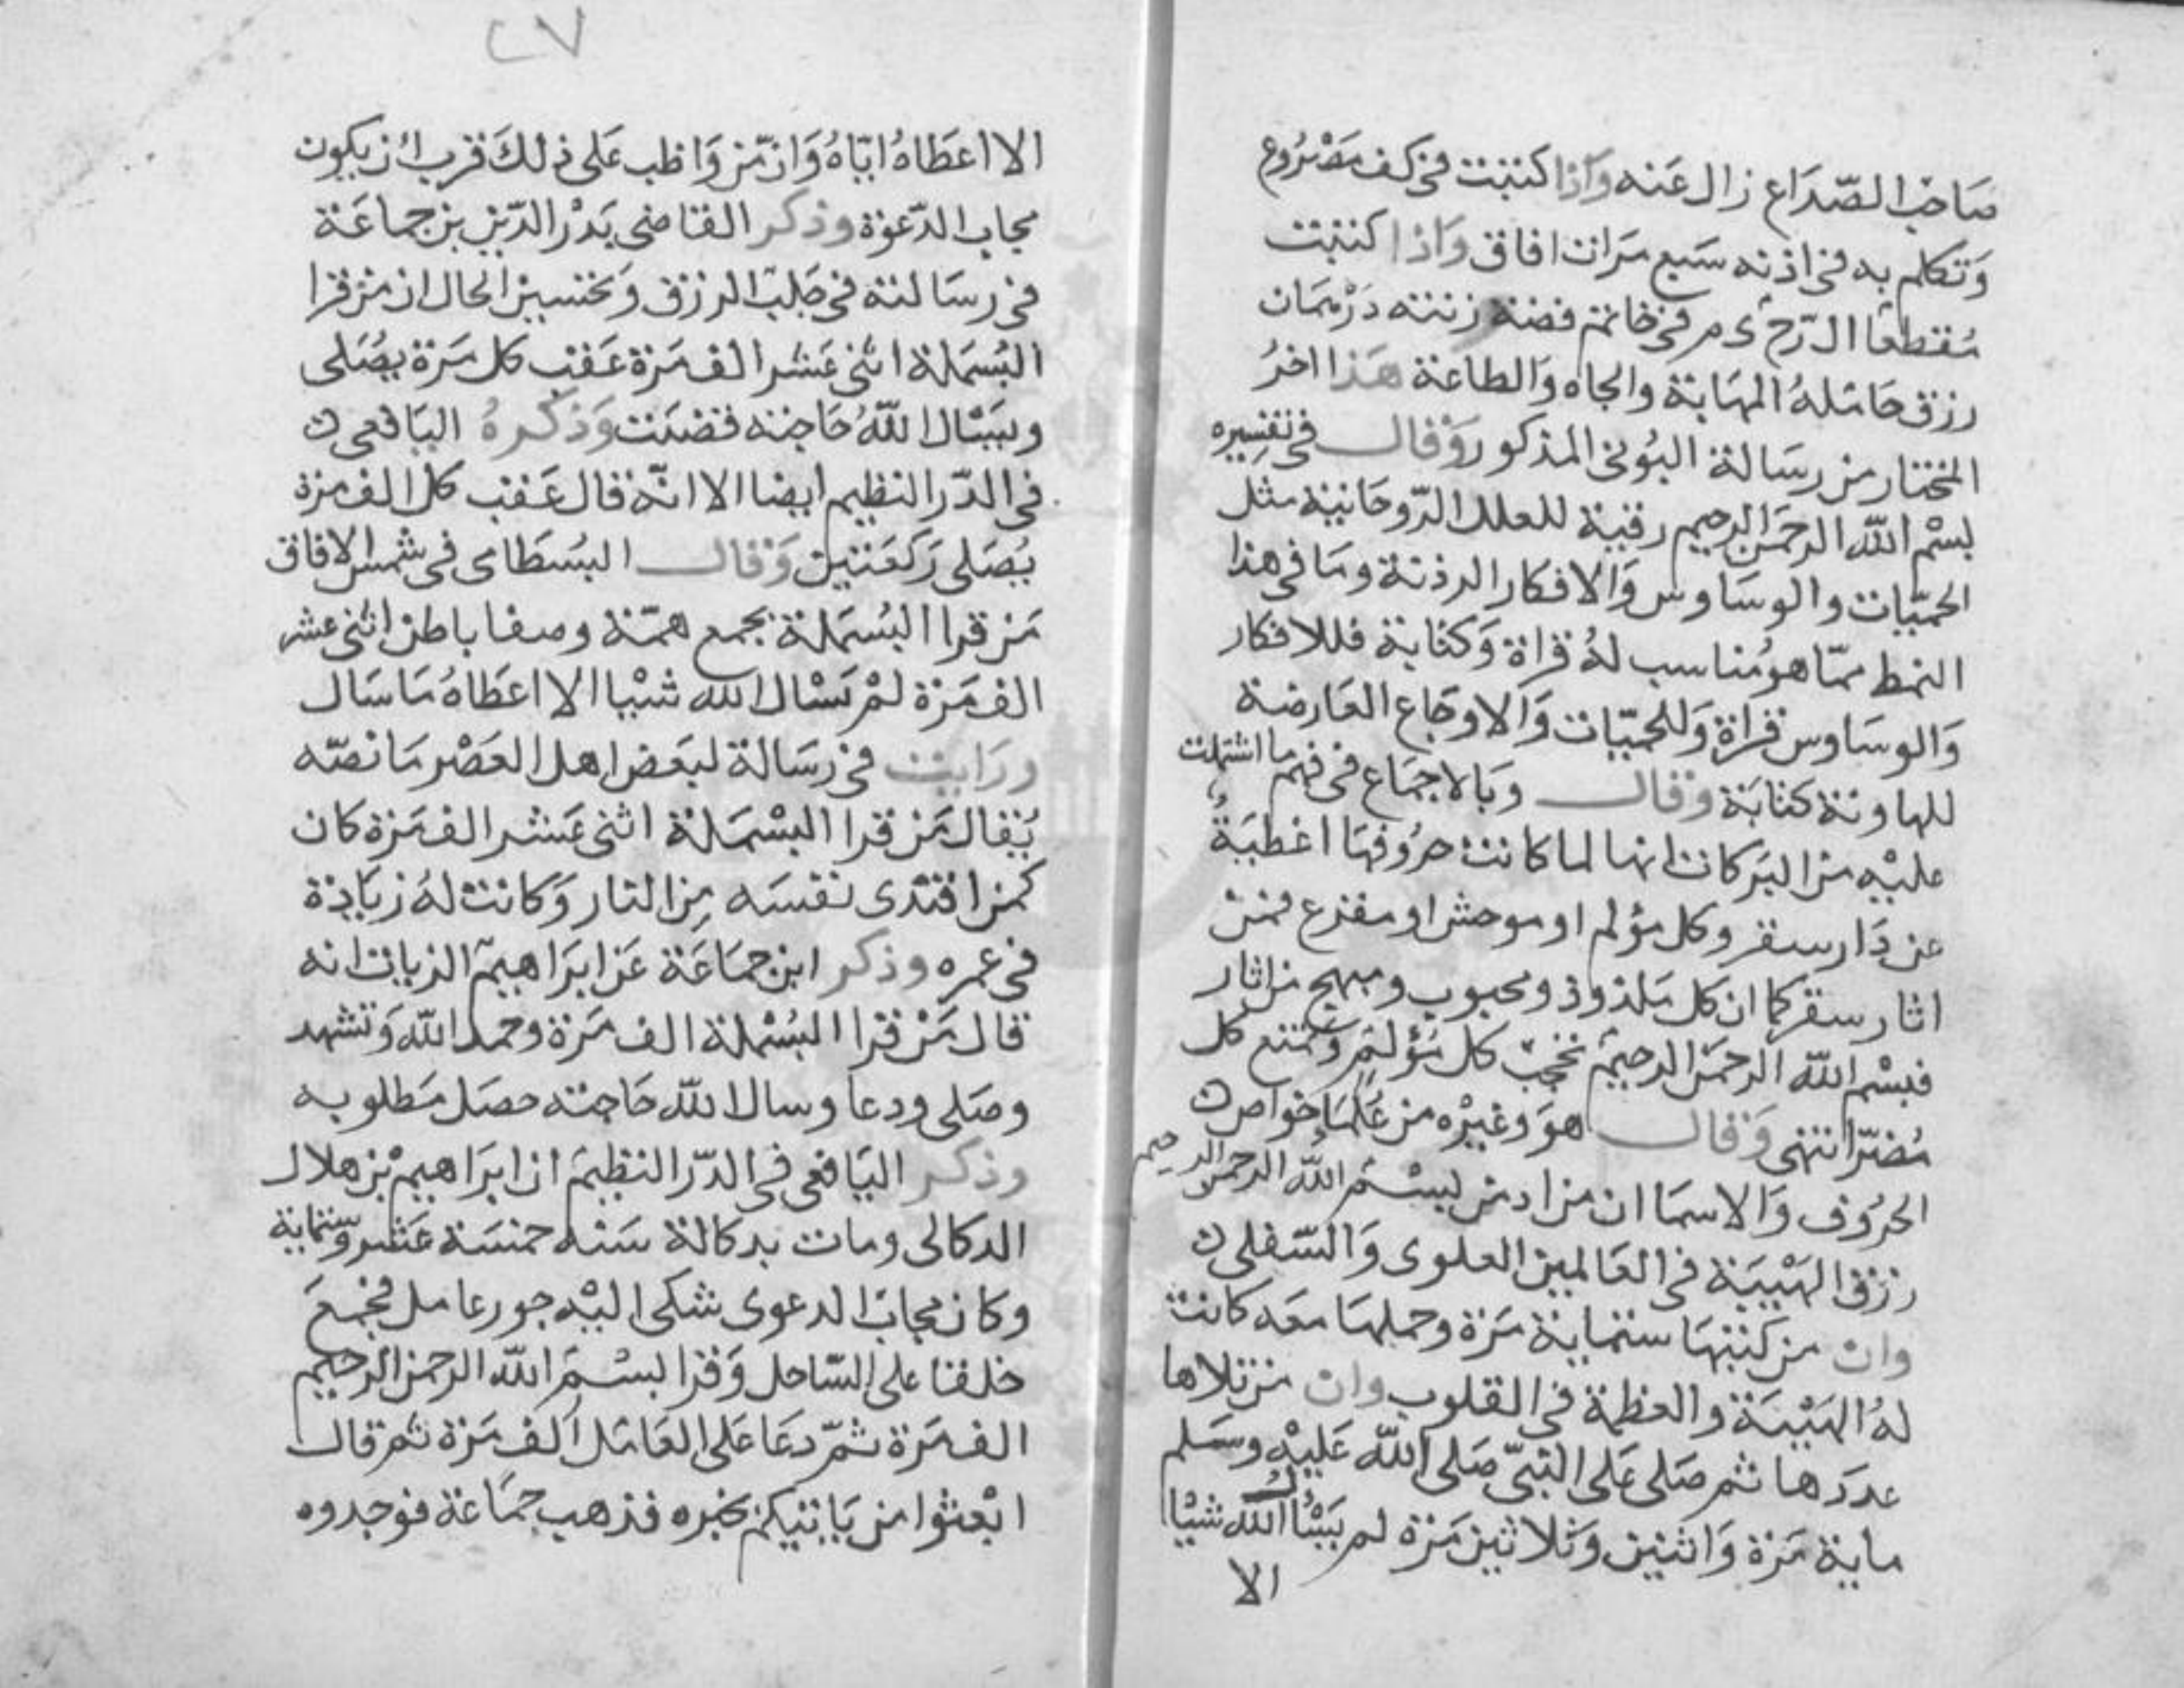 صاحب الصّداع زال عنه واذا كتبت في كف مصروع
وتكلم به في اذنه سبع مرات افاق واذا كتبت
مقطعا الرح ى م في خاتم فضة زنته درهمان
رزق حامله المهابة والجاه والطاعة هذا اخر
المختار من رسالة البوني المذكور وقال في تفسيره
بسم الله الرحمن الرحيم رقية للعلل الرّوحانية مثل
الحميّات والوساوس والافكار الرذئة وما في هذا
النمط ممّا هو مُناسب لهُ قراة وكتابة فللافكار
والوساوس قراة وللحميّات والاوجاع العارضة
كتابة وقال وبالاجماع في فهم ما اشتملت
عليه من البركات انها لما كانت حروفها اغطية
عن دار سقر وكل مؤلم او موحش او مفزع فمن
اثار سقر كما ان كل ملذوذ ومحبوب ومبهج من اثار
فبسم الله الرحمن الرحيم تحجب كل مؤلم وتمنع كل
مُضرّ انتهى وقال هو وغيره من علما خواص
الحروف والاسما ان من ادمن بسم الله الرحمن الرحيم
رزق الهيبة في العالمين العلوى والسّفلى
وان من كتبها ستماية مرة وحملها معه كانت
لهُ الهيبة والعظمة في القلوب وان من تلاها
عددها ثم صلى على النبيّ صلى الله عليه وسلم
ماية مرة واثنين وثلاثين مرة لم يسأل الله شيا
الا
٢٧
الا اعطاهُ ايّاهُ وان من واظب على ذلك قرب ان يكون
مجاب الدّعوة وذكر القاضى بدر الدّين بن جماعة
في رسالته في جلب الرزق وتحسين الحال ان من قرا
البسملة اثنى عشر الف مرة عقب كل مرة يصلى
ويسال الله حاجته قضيت وذكرهُ اليافعى
في الدّر النظيم ايضا الا انّه قال عقب كل الف مرة
يصلى ركعتين وقال البسطامى في شمس الافاق
من قرا البسملة بجمع همّة وصفا باطن اثنى عشر
الف مرة لم يسال الله شيا الا اعطاهُ ما سال
ورايت في رسالة لبعض اهل العصر ما نصّه
يُقال من قرا البسملة اثنى عشر الف مرة كان
كمن افتدى نفسه من النار وكانت لهُ زيادة
في عمره وذكر ابن جماعة عن ابراهيم الزيات انه
قال من قرا البسملة الف مرة وحمد الله وتشهد
وصلى ودعا وسال الله حاجته حصل مطلوبه
وذكر اليافعى في الدّر النظيم ان ابراهيم بن هلال
الدكالى ومات بدكالة سنه خمسة عشر وستماية
وكان مجاب الدعوى شكى اليه جور عامل فجمع
خلقا على السّاحل وقرا بسم الله الرحمن الرحيم
الف مرة ثمّ دعا على العامل الف مرة ثم قال
ابعثوا من ياتيكم بخبره فذهب جماعة فوجدوه